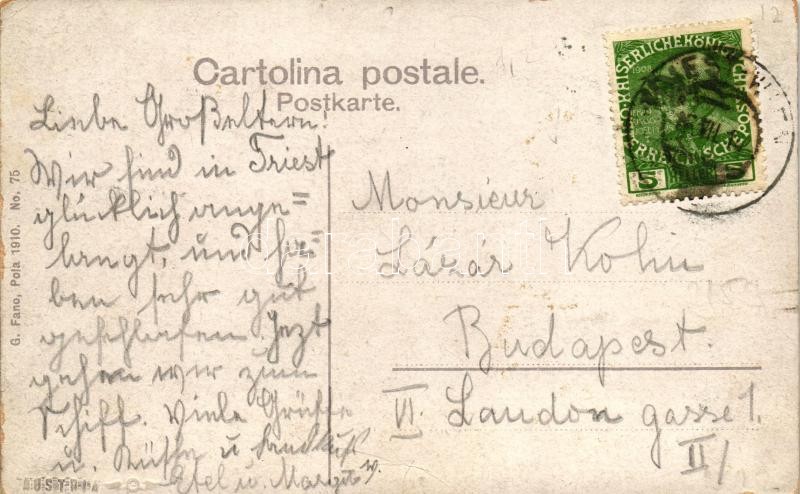 Cartolina postale.
Postkarte.
Liebe Großeltern!
Wir sind in Triest
glücklich ange=
langt, und ha=
ben sehr gut
geschlafen. Jezt
gehen wir zum
Schiff. Viele Grüße
u. Küsse u. Handkuß
u. Margit
Monsieur
Lázár Kohn
Budapest.
VI. Laudon gasse 1.
II/
G. Fano, Pola 1910. No. 75
1908
5 5